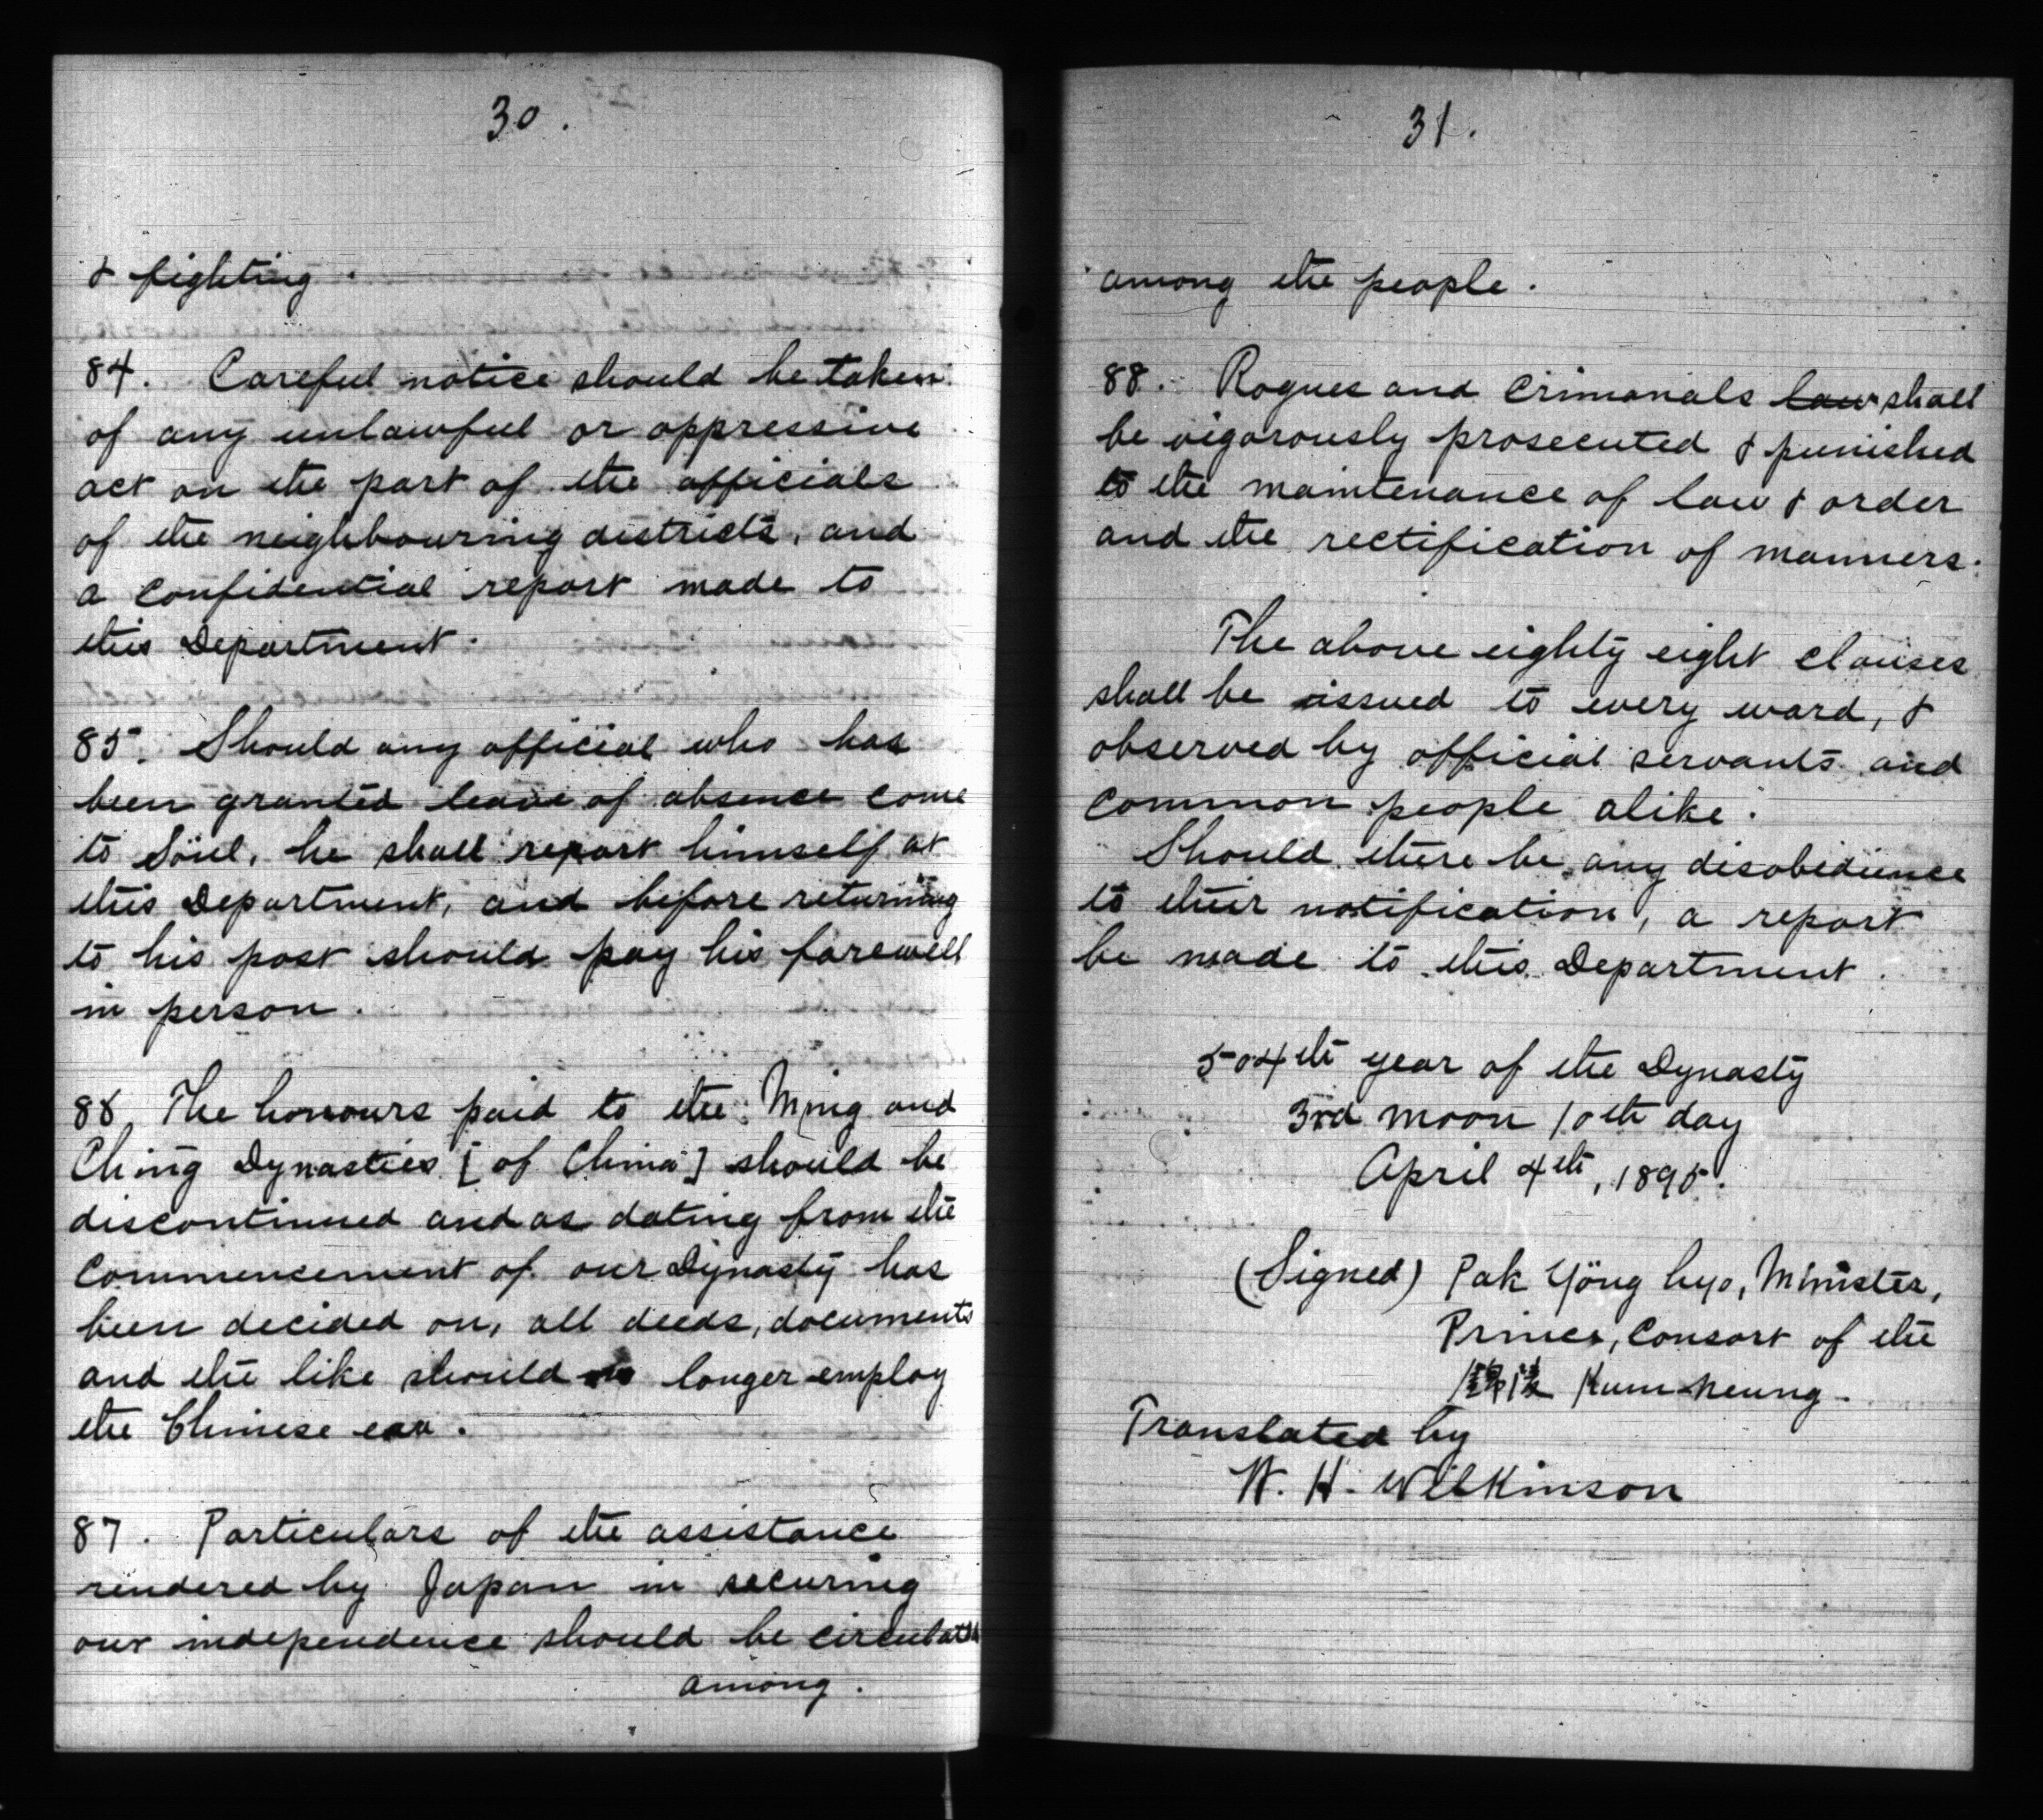 30.
& fighting.
84. Careful notice should be taken
of any unlawful or oppressive
act on the part of the officials
of the neighbouring districts, and
a confidential report made to
this Department.
85. Should any official who has
been granted leave of absence come
to Söul, he shall report himself at
this Department, and before returning
to his post should pay his farewell
in person.
86 The honours paid to the Ming and
Ching Dynasties [of China] should be
discontinued and as dating from the
commencement of our Dynasty has
been decided on, all deeds, documents
and the like should no longer employ
the Chinese era.
87. Particulars of the assistance
rendered by Japan in securing
our independence should be circulated
among.
31.
among the people.
88. Rogues and Crimanals law shall
be vigorously prosecuted & punished
to the maintenance of law & order
and the rectification of manners.
The above eighty eight clauses
shall be issued to every ward, &
observed by official servants and
common people alike.
Should there be any disobedience
to their notification, a report
be made to this Department.
504th year of the Dynasty
3rd moon 10th day
April 4th, 1895.
(Signed) Pak Yöng hyo, Minister,
Prince, Consort of the
Kum neung.
Translated by
W. H. Wilkinson